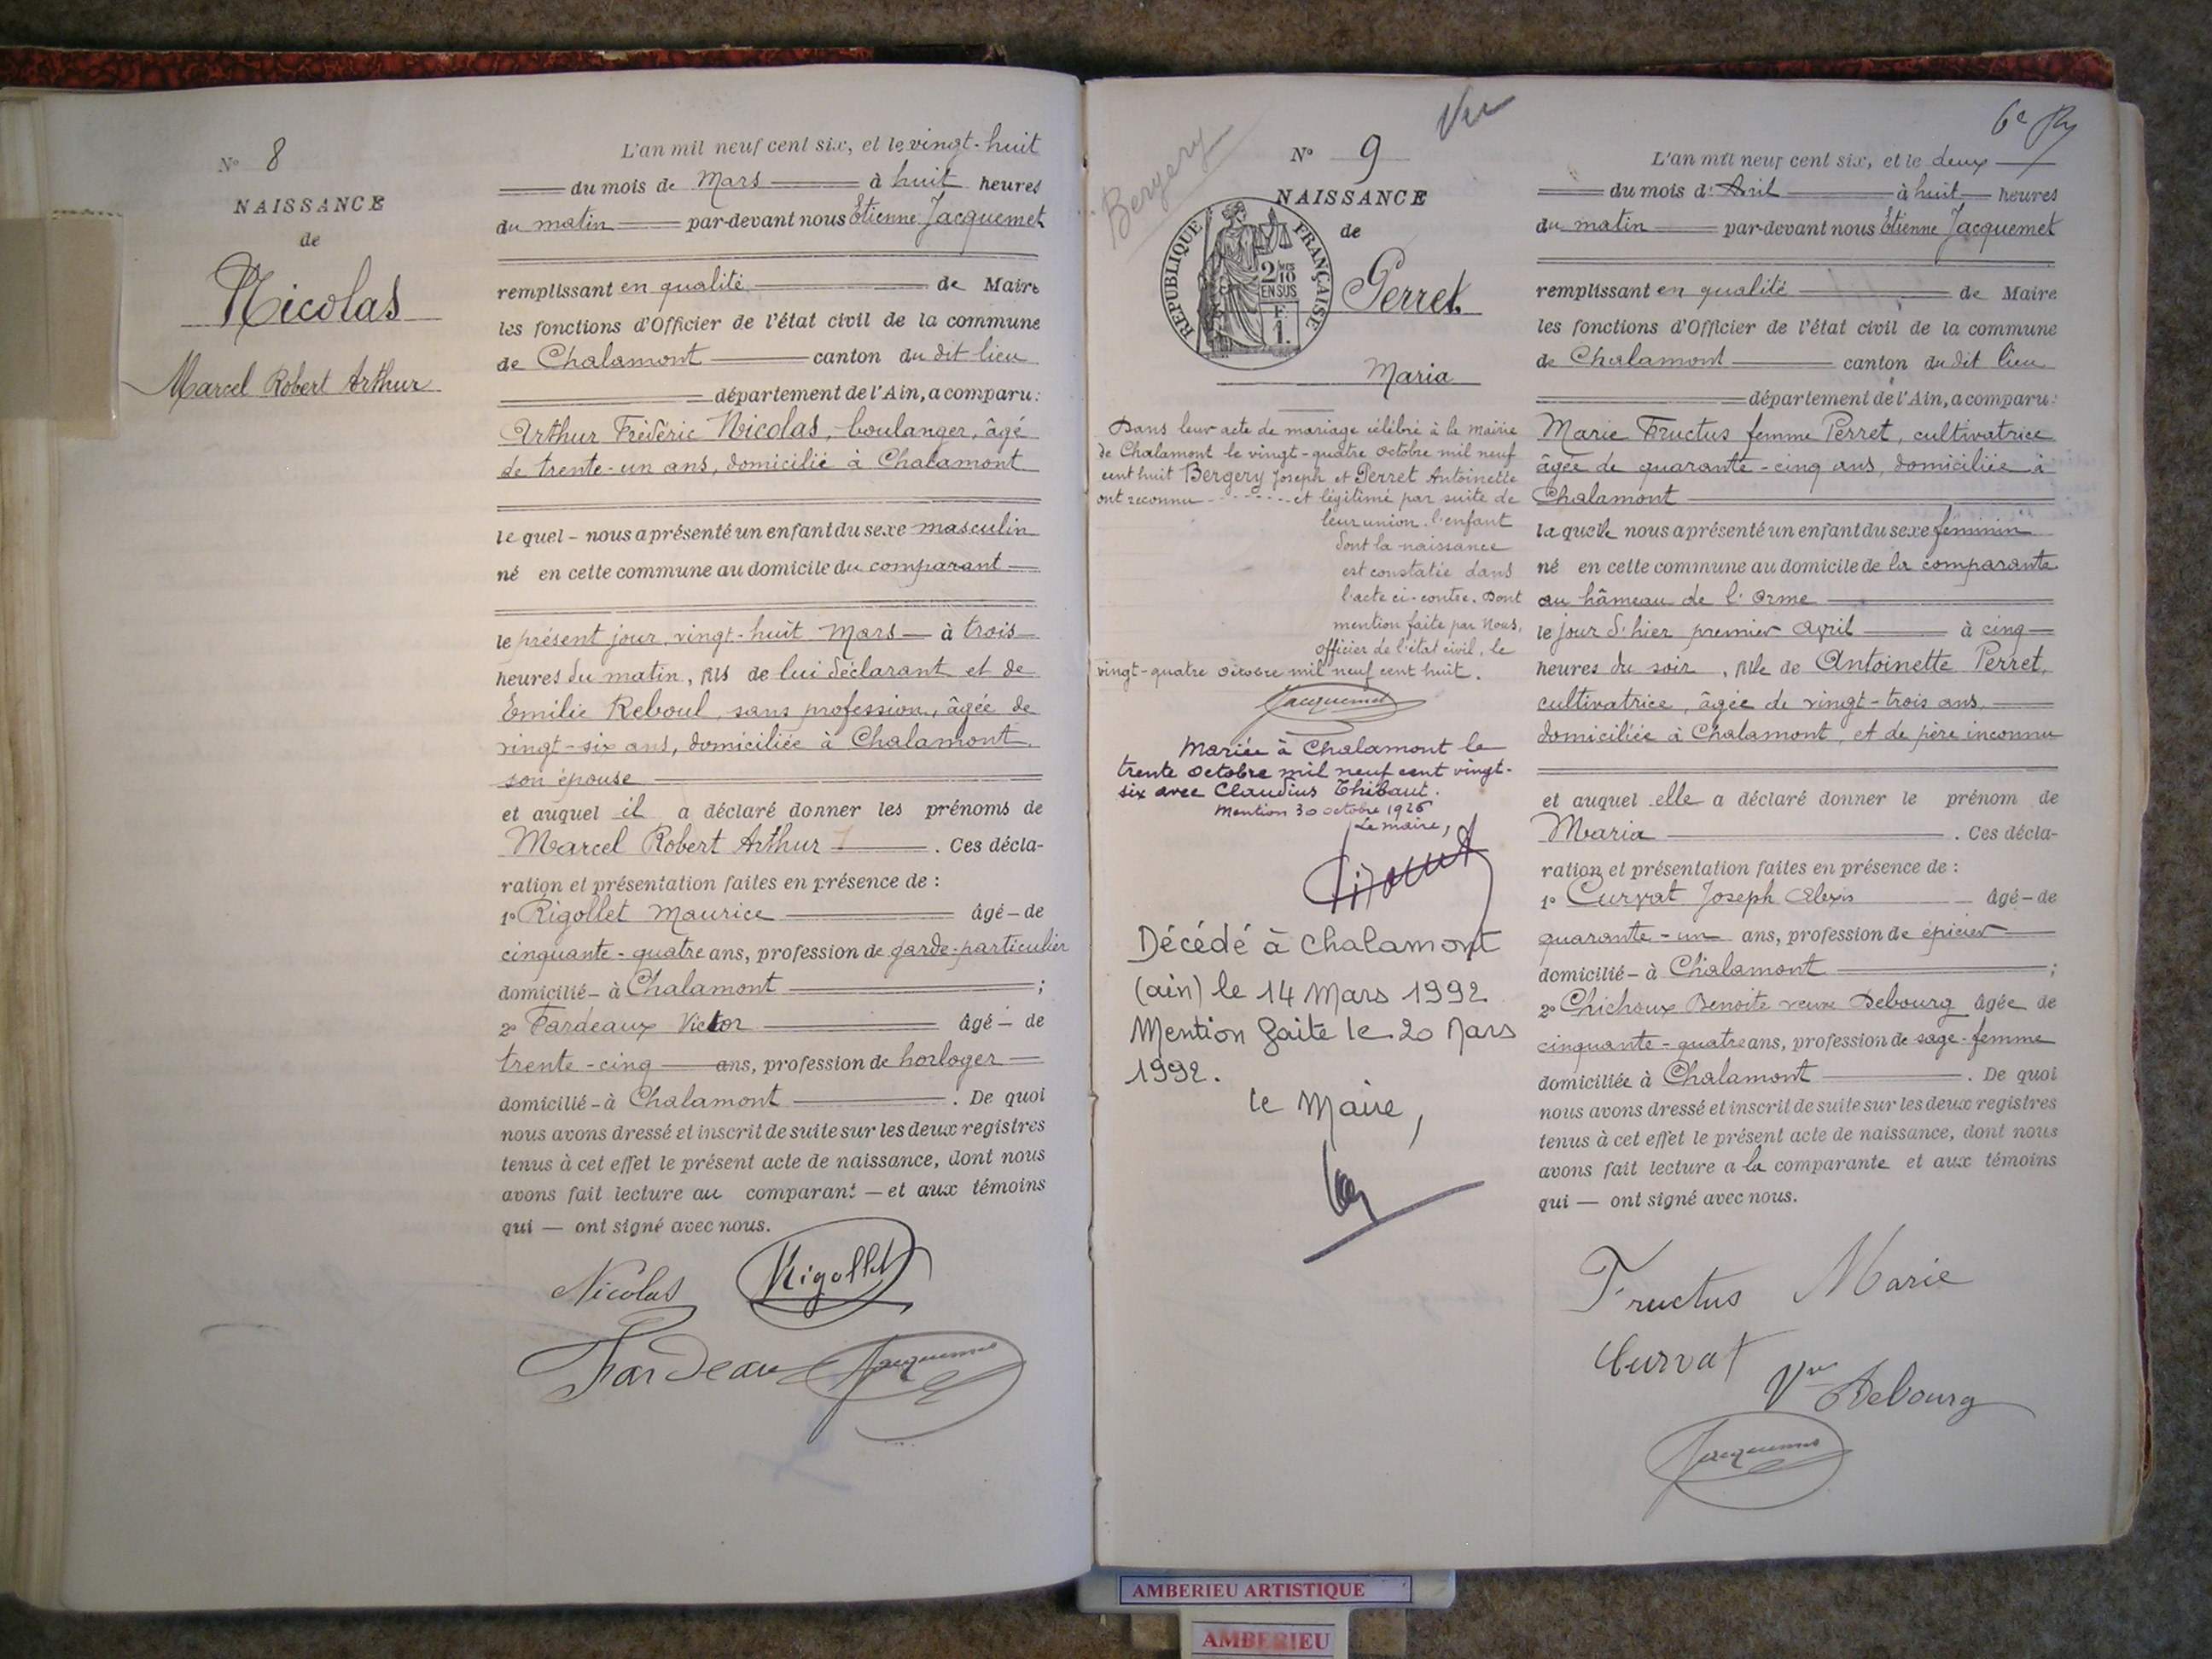 N° 8
NAISSANCE
de
Nicolas
Marcel Robert Arthur
L'an mil neuf cent six, et le vingt-huit
du mois de Mars à huit heures
du matin par-devant nous Etienne Jacquemet
remplissant en qualité de Maire
les fonctions d'Officier de l'état civil de la commune
de Chalamont canton du dit lieu
département de l'Ain, a comparu:
Arthur Frédéric Nicolas, boulanger, âgé
de trente-un ans, domicilié à Chalamont
le quel - nous a présenté un enfant du sexe masculin
né en cette commune au domicile du comparant
le présent jour, vingt-huit Mars à trois
heures du matin, fils de lui déclarant et de
Emilie Reboul, sans profession, âgée de
vingt-six ans, domiciliée à Chalamont
son épouse
et auquel il a déclaré donner les prénoms de
Marcel Robert Arthur . Ces décla-
ration et présentation faites en présence de :
1° Rigollet Maurice âgé - de
cinquante-quatre ans, profession de garde-particulier
domicilié - à Chalamont ;
2° Fardeaux Victor âgé - de
trente-cinq ans, profession de horloger
domicilié - à Chalamont . De quoi
nous avons dressé et inscrit de suite sur les deux registres
tenus à cet effet le présent acte de naissance, dont nous
avons fait lecture au comparant — et aux témoins
qui — ont signé avec nous.
Nicolas Rigollet
Fardeau Jacquemet
Bergery
Vu
N° 9
NAISSANCE
de
REPUBLIQUE FRANÇAISE
2/10 MES
EN SUS
F.
1.
Perret
Maria
Dans leur acte de mariage célébré à la mairie
de Chalamont le vingt-quatre octobre mil neuf
cent huit Bergery Joseph et Perret Antoinette
ont reconnu - - - - - - - et légitimé par suite de
leur union, l'enfant
dont la naissance
est constatée dans
l'acte ci-contre. Dont
mention faite par Nous,
officier de l'état civil, le
vingt-quatre octobre mil neuf cent huit.
Jacquemet
Mariée à Chalamont le
trente octobre mil neuf cent vingt-
six avec Claudius Thibaut.
Mention 30 octobre 1926
Le maire,
Décédé à Chalamont
(ain) le 14 Mars 1992
Mention faite le 20 Mars
1992.
le Maire,
6e
L'an mil neuf cent six, et le deux
du mois d' Avril à huit heures
du matin par-devant nous Etienne Jacquemet
remplissant en qualité de Maire
les fonctions d'Officier de l'état civil de la commune
de Chalamont canton du dit lieu
département de l'Ain, a comparu:
Marie Fructus femme Perret, cultivatrice
âgée de quarante-cinq ans, domiciliée à
Chalamont
laquelle nous a présenté un enfant du sexe féminin
né en cette commune au domicile de la comparante
au hâmeau de l'Orme
le jour d'hier premier Avril à cinq
heures du soir, fille de Antoinette Perret,
cultivatrice, âgée de vingt-trois ans
domiciliée à Chalamont, et de père inconnu
et auquel elle a déclaré donner le prénom de
Maria . Ces décla-
ration et présentation faites en présence de :
1° Curvat Joseph Alexis âgé - de
quarante-un ans, profession de épicier
domicilié - à Chalamont ;
2° Chichoux Benoite veuve Debourg âgée de
cinquante-quatre ans, profession de sage-femme
domiciliée à Chalamont . De quoi
nous avons dressé et inscrit de suite sur les deux registres
tenus à cet effet le présent acte de naissance, dont nous
avons fait lecture a la comparante et aux témoins
qui — ont signé avec nous.
Fructus Marie
Curvat
Vve Debourg
Jacquemet
AMBERIEU ARTISTIQUE
AMBERIEU